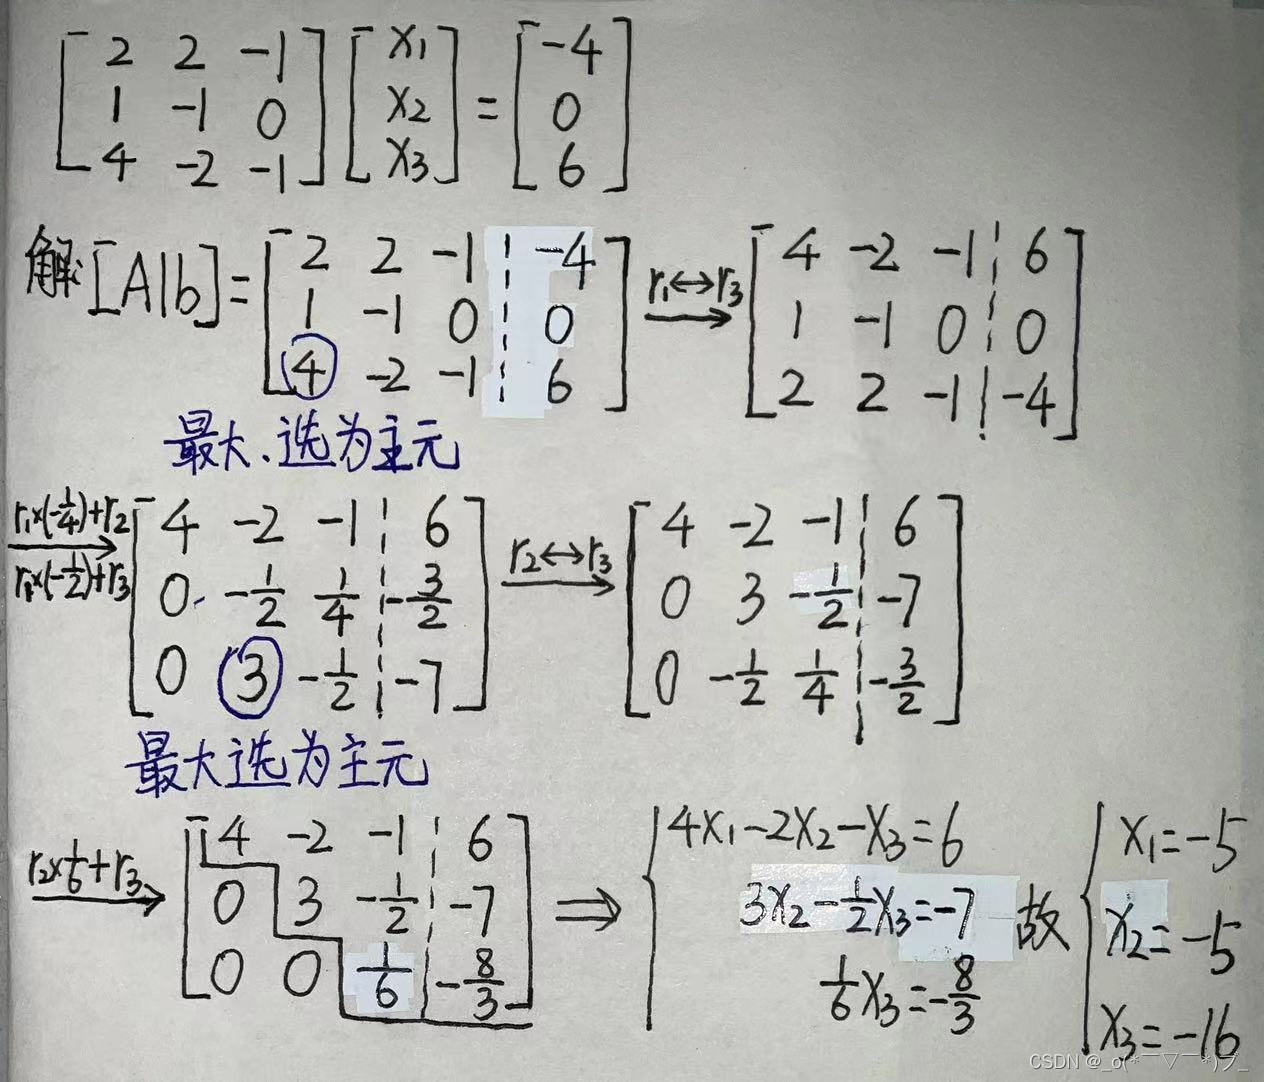 [2 2 -1; 1 -1 0; 4 -2 -1] [x₁; x₂; x₃] = [-4; 0; 6]
解: [A|b] = [2 2 -1 ¦ -4; 1 -1 0 ¦ 0; ④ -2 -1 ¦ 6] r₁↔r₃ → [4 -2 -1 ¦ 6; 1 -1 0 ¦ 0; 2 2 -1 ¦ -4]
最大、选为主元
r₁×(-1/4)+r₂ r₁×(-1/2)+r₃ → [4 -2 -1 ¦ 6; 0 -1/2 1/4 ¦ -3/2; 0 ③ -1/2 ¦ -7] r₂↔r₃ → [4 -2 -1 ¦ 6; 0 3 -1/2 ¦ -7; 0 -1/2 1/4 ¦ -3/2]
最大选为主元
r₂×1/6+r₃ → [4 -2 -1 ¦ 6; 0 3 -1/2 ¦ -7; 0 0 1/6 ¦ -8/3] ⇒ { 4x₁-2x₂-x₃=6; 3x₂-1/2x₃=-7; 1/6x₃=-8/3 故 { x₁=-5; x₂=-5; x₃=-16
CSDN @_o(*￣▽￣*)ブ_